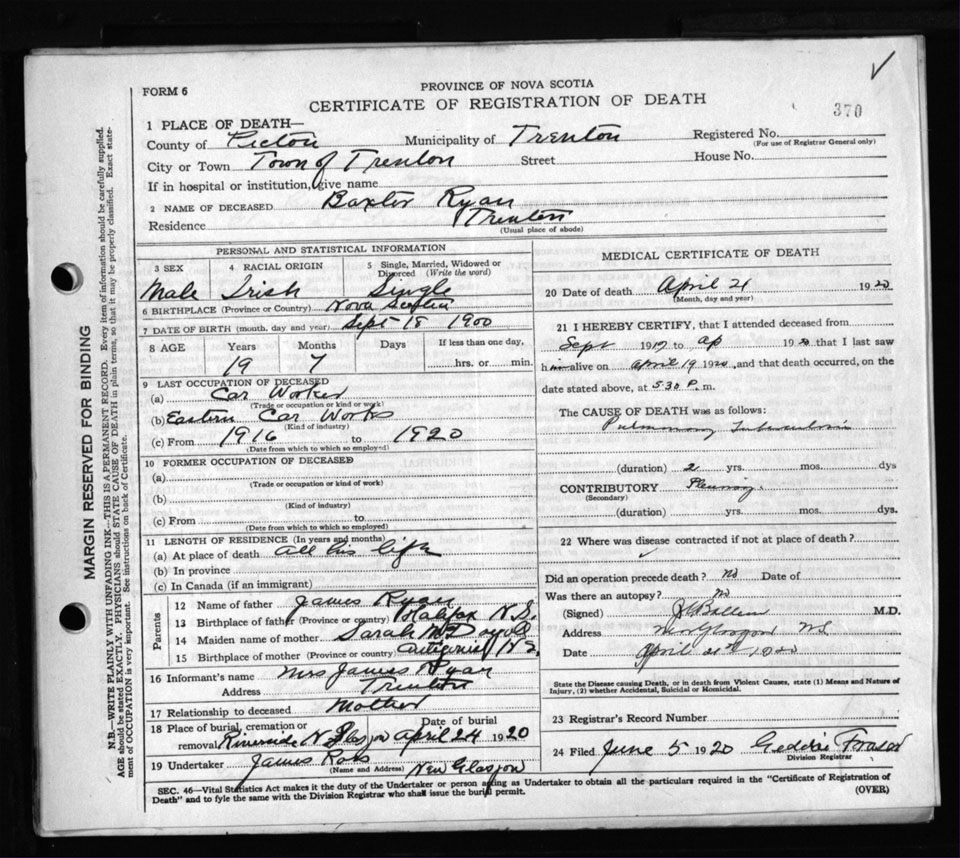 FORM 6
PROVINCE OF NOVA SCOTIA
CERTIFICATE OF REGISTRATION OF DEATH
370
1 PLACE OF DEATH—
County of Pictou Municipality of Trenton Registered No.
(For use of Registrar General only)
City or Town Town of Trenton Street House No.
If in hospital or institution, give name
2 NAME OF DECEASED Baxter Ryan
Residence Trenton
(Usual place of abode)
PERSONAL AND STATISTICAL INFORMATION
3 SEX 4 RACIAL ORIGIN 5 Single, Married, Widowed or Divorced (Write the word)
Male Irish Single
6 BIRTHPLACE (Province or Country) Nova Scotia
7 DATE OF BIRTH (month, day and year) Sept 18 1900
8 AGE Years Months Days If less than one day,
19 7 hrs. or min.
9 LAST OCCUPATION OF DECEASED
(a) Car Worker
(Trade or occupation or kind or work)
(b) Eastern Car Works
(Kind of industry)
(c) From 1916 to 1920
(Date from which to which so employed)
10 FORMER OCCUPATION OF DECEASED
(a)
(Trade or occupation or kind of work)
(b)
(Kind of industry)
(c) From to
(Date from which to which so employed)
11 LENGTH OF RESIDENCE (In years and months)
(a) At place of death all his life
(b) In province
(c) In Canada (if an immigrant)
Parents
12 Name of father James Ryan
13 Birthplace of father (Province or country) Halifax N.S.
14 Maiden name of mother Sarah
15 Birthplace of mother (Province or country) N.S.
16 Informant's name Mrs James Ryan
Address Trenton
17 Relationship to deceased Mother
18 Place of burial, cremation or Date of burial
removal Riverside N. Glasgow april 24 1920
19 Undertaker James Ross New Glasgow
(Name and Address)
MEDICAL CERTIFICATE OF DEATH
20 Date of death April 21 1920
(Month, day and year)
21 I HEREBY CERTIFY, that I attended deceased from
Sept 1917 to ap 1920 that I last saw
him alive on april 19 1920, and that death occurred, on the
date stated above, at 5:30 P. m.
The CAUSE OF DEATH was as follows:
Pulmonary Tuberculosis
(duration) 2 yrs. mos. dys
CONTRIBUTORY Pleurisy.
(Secondary)
(duration) yrs. mos. dys.
22 Where was disease contracted if not at place of death?
Did an operation precede death? no Date of
Was there an autopsy? no
(Signed) M.D.
Address New Glasgow NS
Date April 21st 1920
State the Disease causing Death, or in death from Violent Causes, state (1) Means and Nature of
Injury, (2) whether Accidental, Suicidal or Homicidal.
23 Registrar's Record Number
24 Filed June 5 1920 Geddie Fraser
Division Registrar
SEC. 46—Vital Statistics Act makes it the duty of the Undertaker or person acting as Undertaker to obtain all the particulars required in the "Certificate of Registration of
Death" and to fyle the same with the Division Registrar who shall issue the burial permit. (OVER)
MARGIN RESERVED FOR BINDING
N.B.—WRITE PLAINLY WITH UNFADING INK—THIS IS A PERMANENT RECORD. Every item of information should be carefully supplied.
AGE should be stated EXACTLY. PHYSICIANS should STATE CAUSE OF DEATH in plain terms, so that it may be properly classified. Exact statement of OCCUPATION is very important. See instructions on back of Certificate.